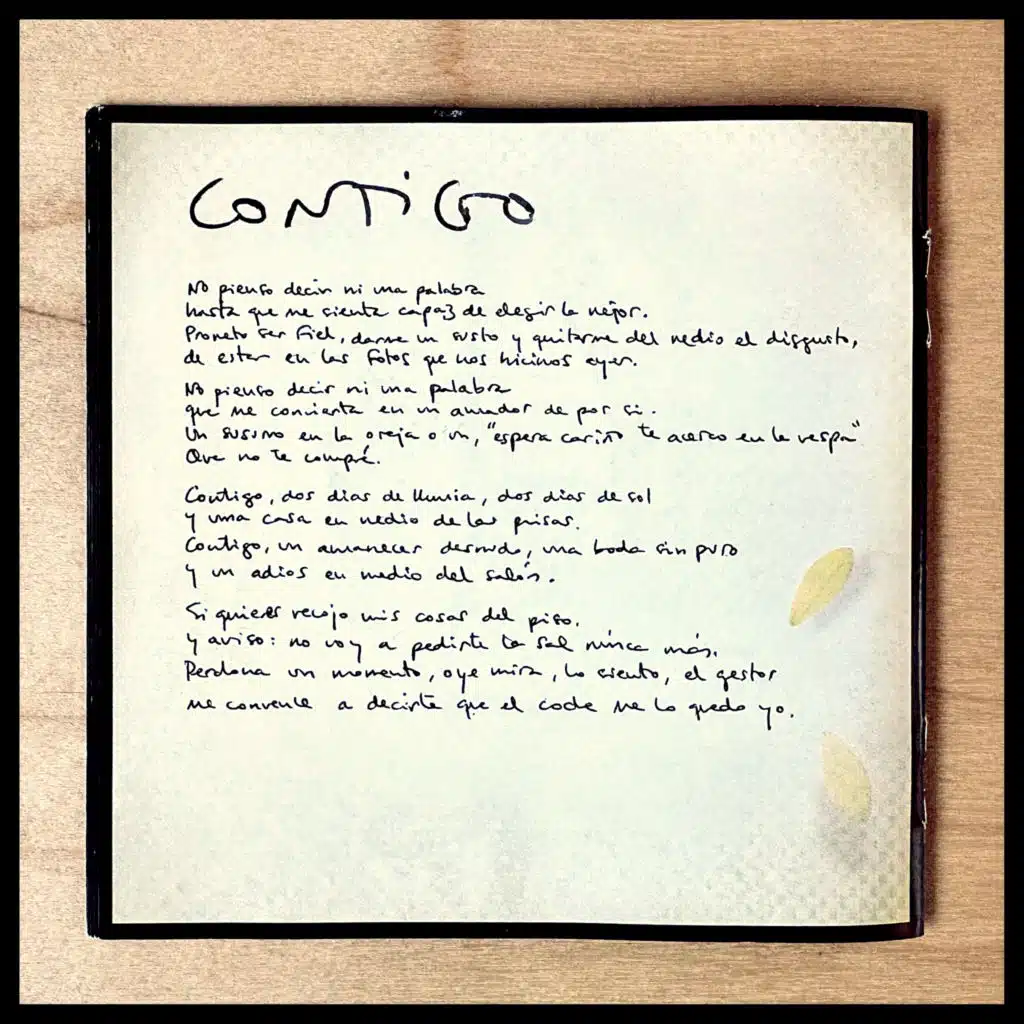 CONTIGO
No pienso decir ni una palabra
hasta que me sienta capaz de elegir la mejor.
Prometo ser fiel, darme un susto y quitarme del medio el disgusto,
de estar en las fotos que nos hicimos ayer.
No pienso decir ni una palabra
que me convierta en un amador de por si.
Un susurro en la oreja o un, "espera cariño te acerco en la vespa"
Que no te compré.
Contigo, dos dias de lluvia, dos dias de sol
y una casa en medio de las prisas.
Contigo, un amanecer desnudo, una boda sin puro
y un adios en medio del salón.
Si quieres recojo mis cosas del piso.
y aviso: no voy a pedirte la sal nunca más.
Perdona un momento, oye mira, lo siento, el gestor
me convence a decirte que el coche me lo quedo yo.